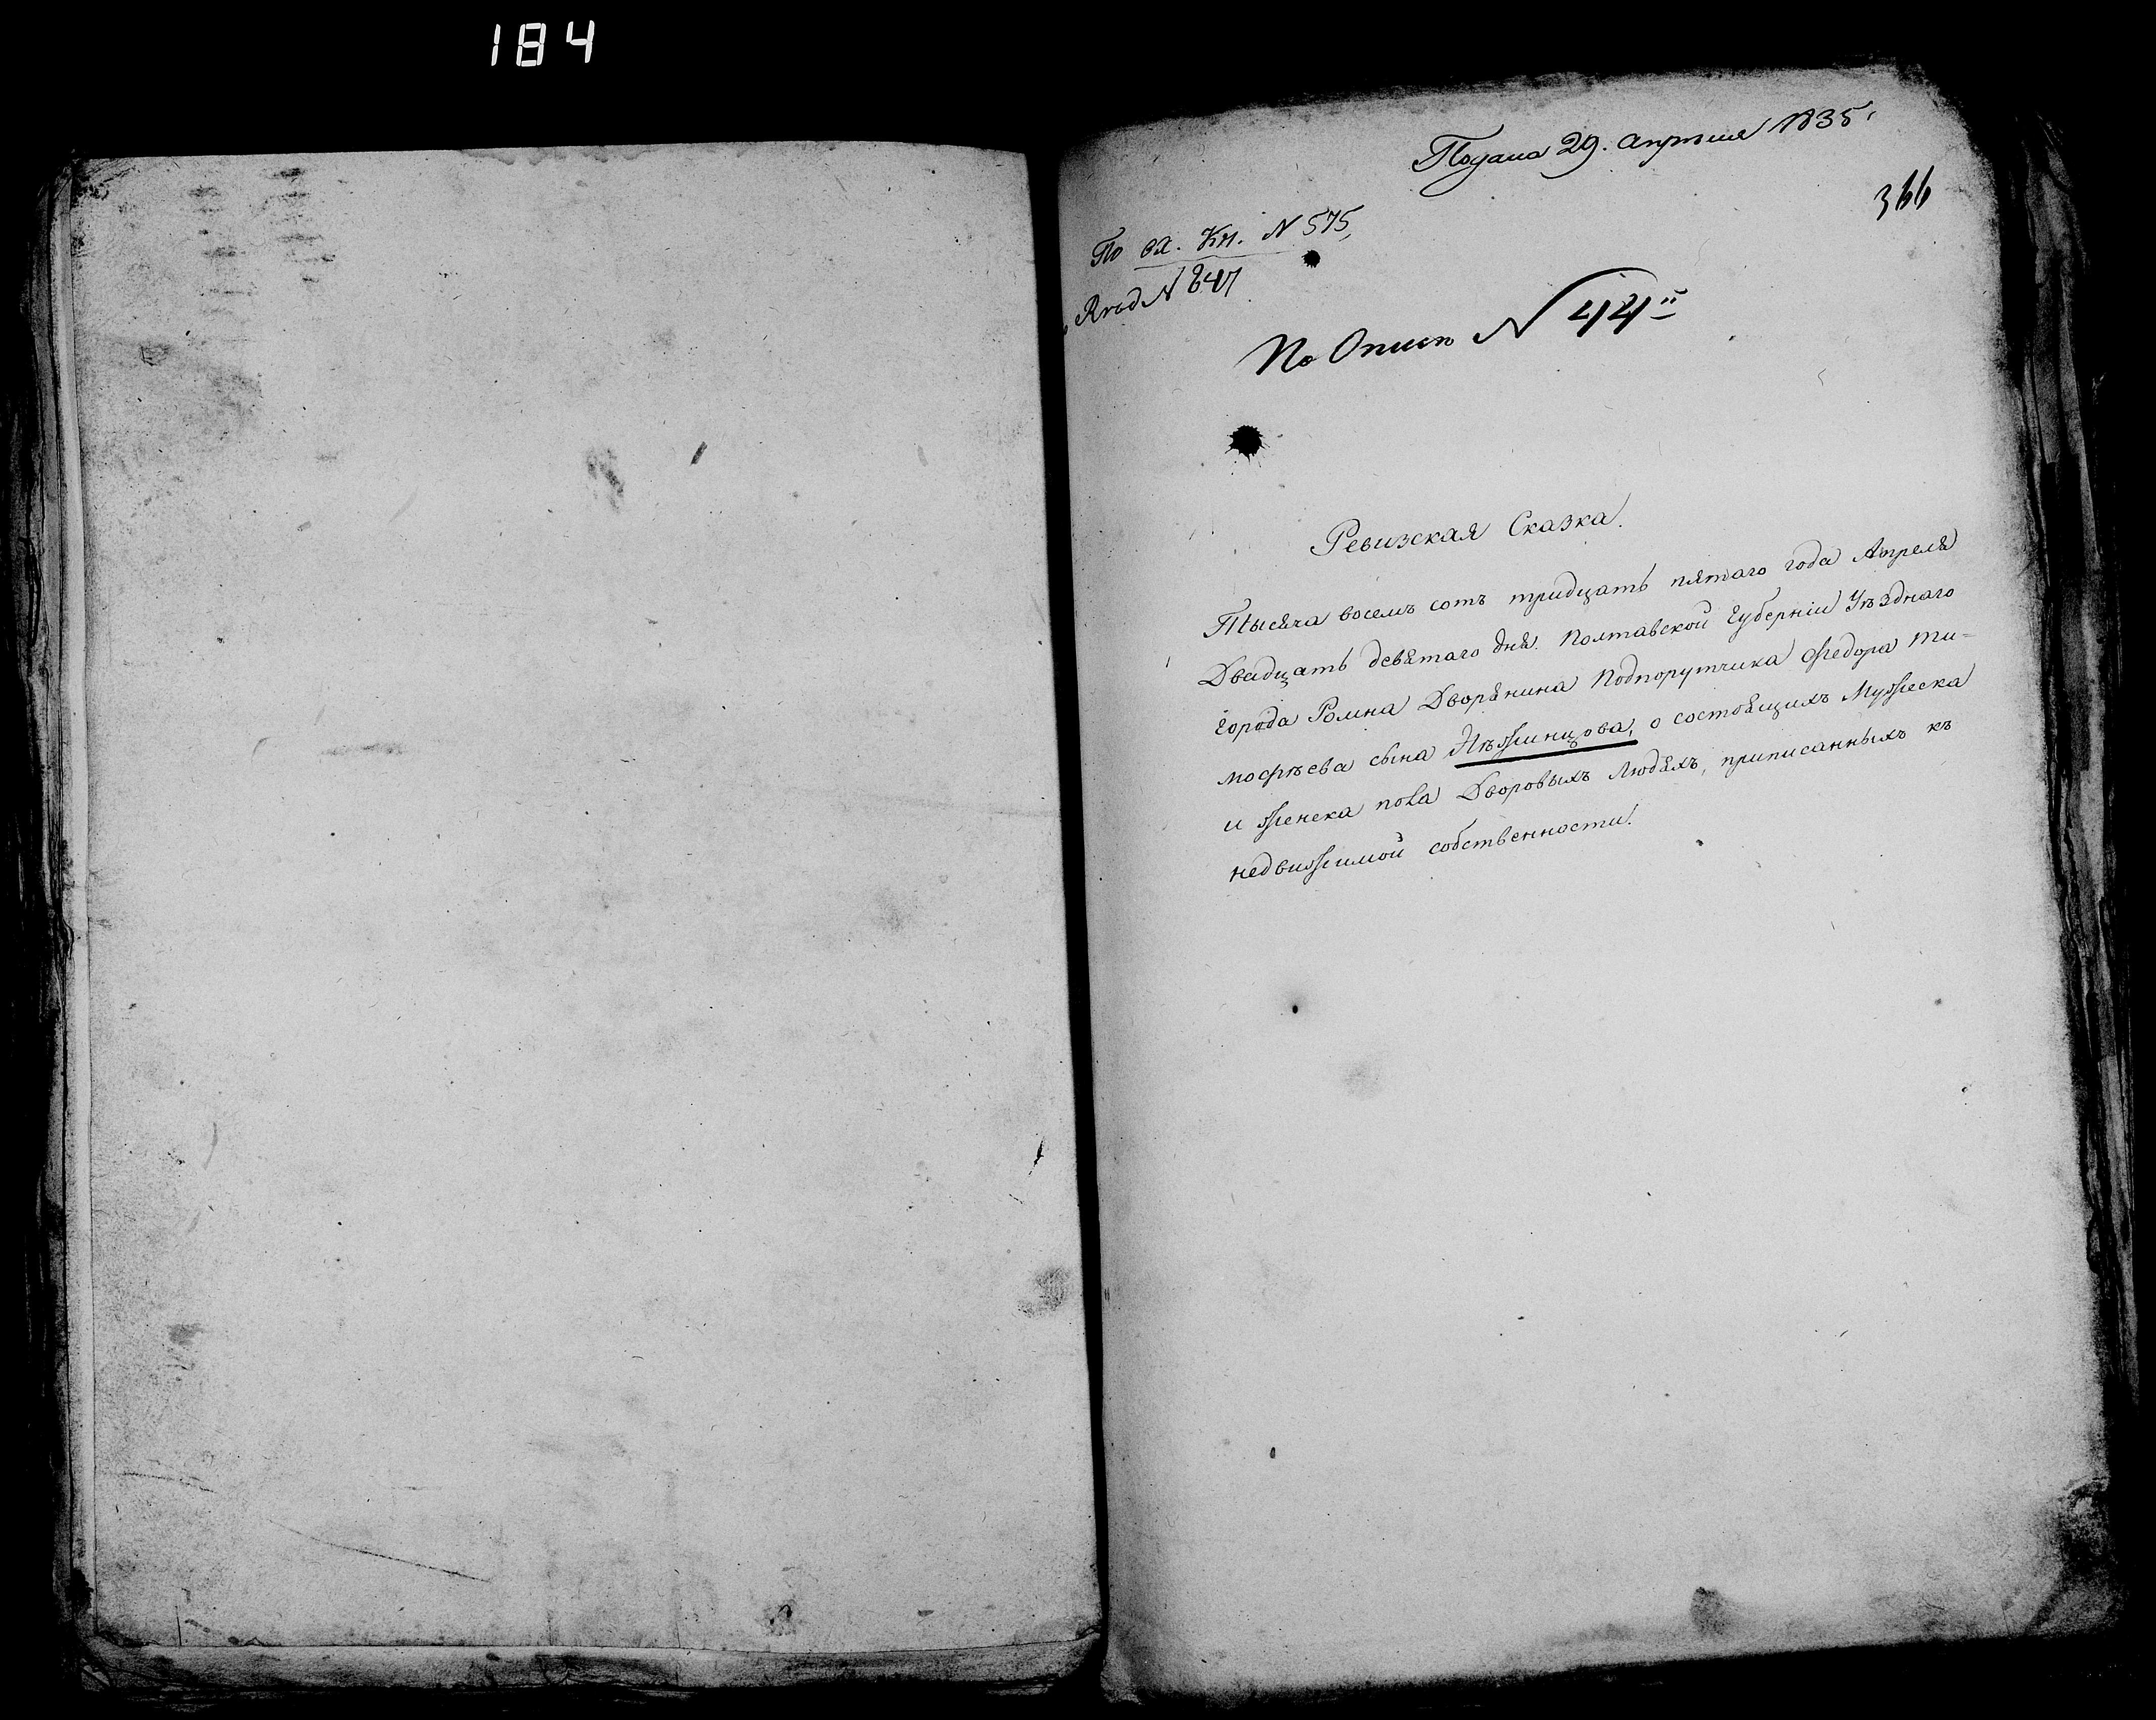 184
Подана 29. апрѣля 1835.
366
По вх. Кн. N 575
N 847
По Описи N 44й
Ревизская Сказка.
Тысяча восемъ сотъ тридцать пятаго года Апреля
Двадцать девятаго дня. Полтавской Губерніи Уѣзднаго
города Ромна Дворянина Подпорутчика Федора Ти-
мофѣева сына Нѣжинцова, о состоящихъ Мужеска
и женска пола Дворовыхъ Людяхъ, приписанныхъ къ
недвижимой собственности.